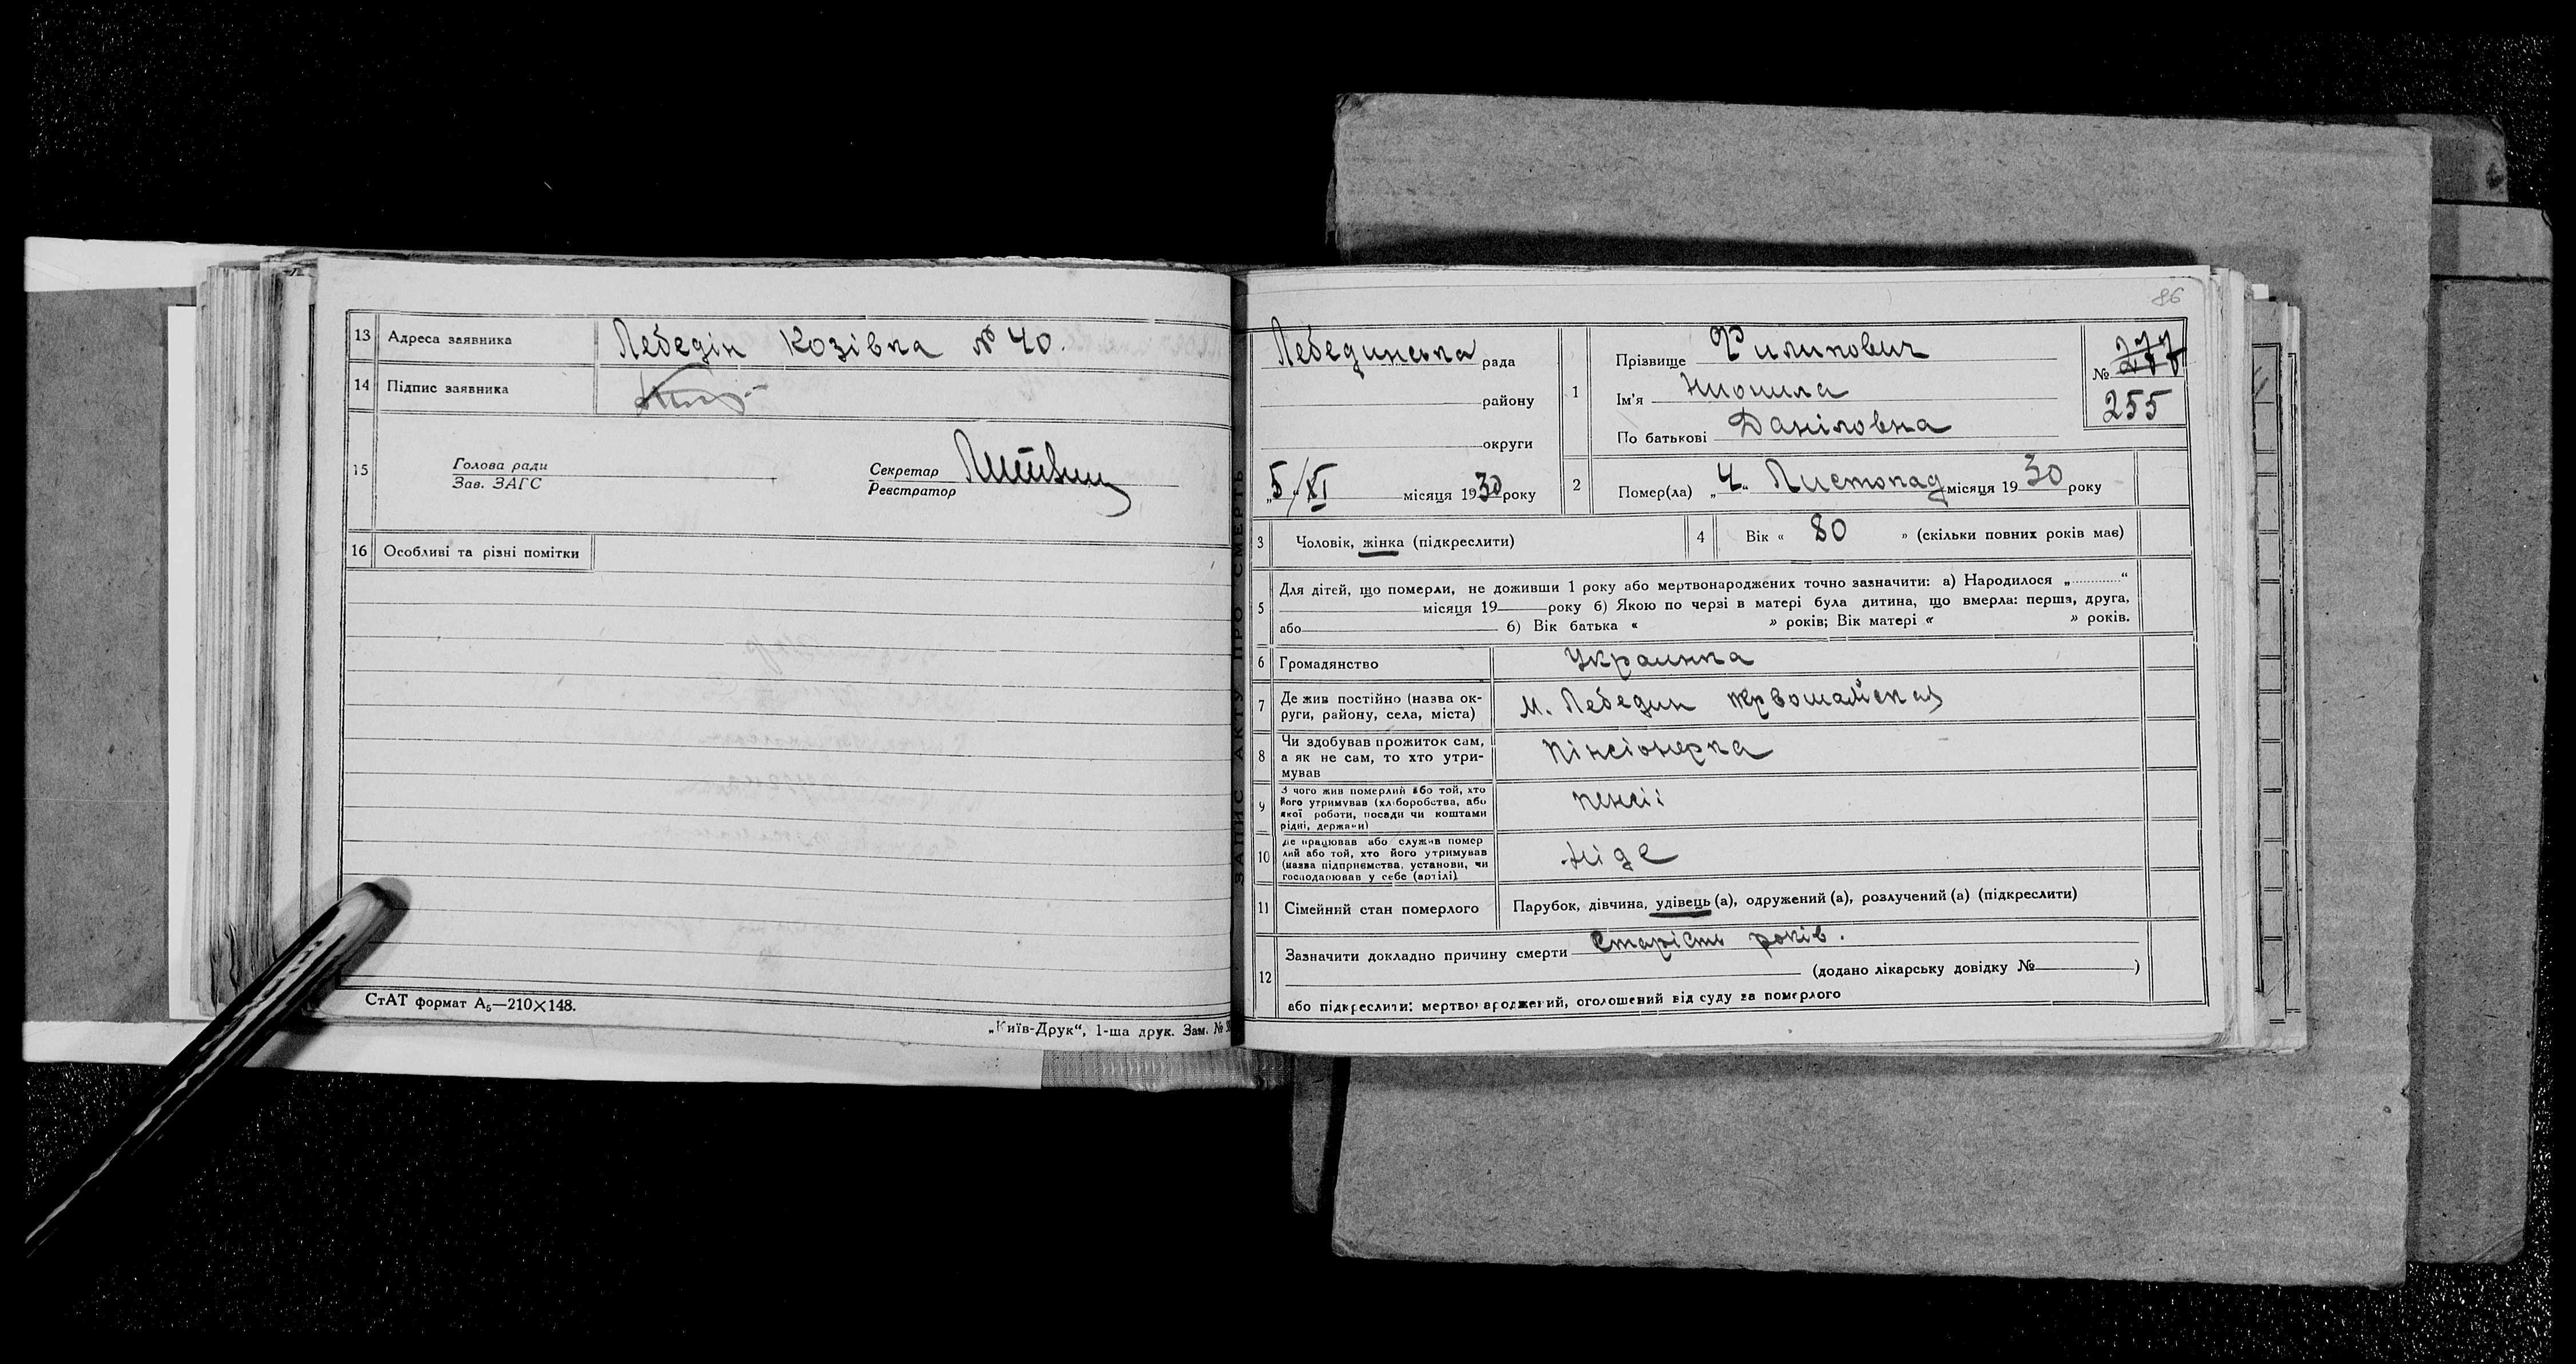 13 Адреса заявника Лебедін Козівка № 40.
14 Підпис заявника
15 Голова ради
Зав. ЗАГС
Секретар Литвин
Реєстратор
16 Особливі та різні помітки
СтАТ формат А₅—210×148.
„Київ-Друк“, 1-ша друк. Зам. №
ЗАПИС АКТУ ПРО СМЕРТЬ
86
Лебединська рада
району
округи
„5“/XI місяця 1930 року
1 Прізвище Филипович
Ім'я Нионила
По батькові Даніловна
№ 277
255
2 Помер(ла) „4“ Листопад місяця 1930 року
3 Чоловік, жінка (підкреслити)
4 Вік « 80 » (скільки повних років має)
5 Для дітей, що померли, не доживши 1 року або мертвонароджених точно зазначити: а) Народилося „ “
місяця 19 року б) Якою по черзі в матері була дитина, що вмерла: перша, друга,
або б) Вік батька « » років; Вік матері « » років.
6 Громадянство Украинка
7 Де жив постійно (назва ок-
руги, району, села, міста) м. Лебедин Первомайская
8 Чи здобував прожиток сам,
а як не сам, то хто утри-
мував Пінсіонерка
9 З чого жив померлий або той, хто
його утримував (хліборобства, або
якої роботи, посади чи коштами
рідні, держави) пенсії
10 Де працював або служив помер
лий або той, хто його утримував
(назва підприємства, установи, чи
господарював у себе (артілі) Ніде
11 Сімейний стан померлого Парубок, дівчина, удівець (а), одружений (а), розлучений (а) (підкреслити)
12 Зазначити докладно причину смерти Старість років.
(додано лікарську довідку № )
або підкреслити: мертвонароджений, оголошений від суду за померлого